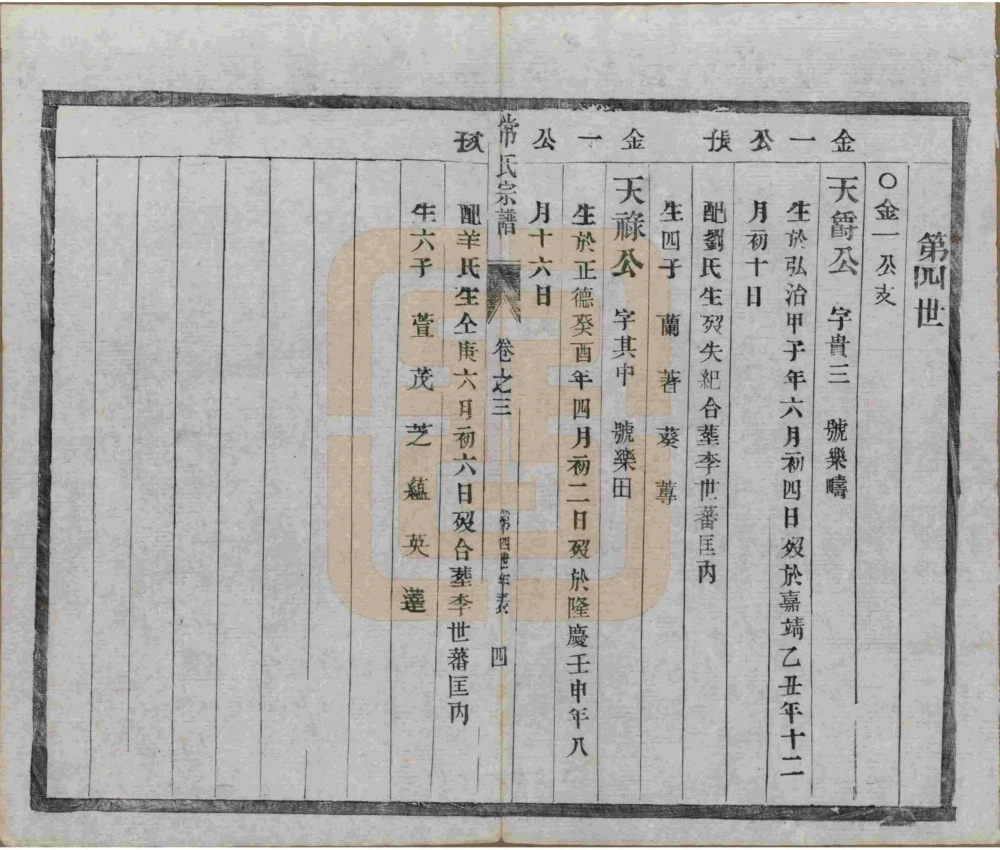 第四世
〇金一公支
金一公長
天爵公 字貴三 號樂疇
生於弘治甲子年六月初四日歿於嘉靖乙丑年十二
月初十日
配劉氏生歿失紀合塟李世蕃匡內
生四子 蘭 著 葵 蓴
金一公次
天祿公 字其中 號樂田
生於正德癸酉年四月初二日歿於隆慶壬申年八
月十六日
常氏宗譜 卷之三 第四世年表 四
配羊氏生仝庚六月初六日歿合塟李世蕃匡內
生六子 萱 茂 芝 蘊 英 薘